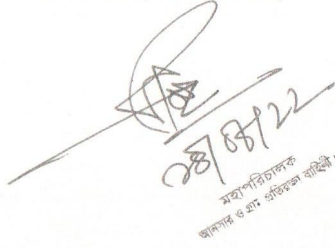 ২৪/০৪/২২
মহাপরিচালক
আনসার ও গ্রাঃ প্রতিরক্ষা বাহিনী।